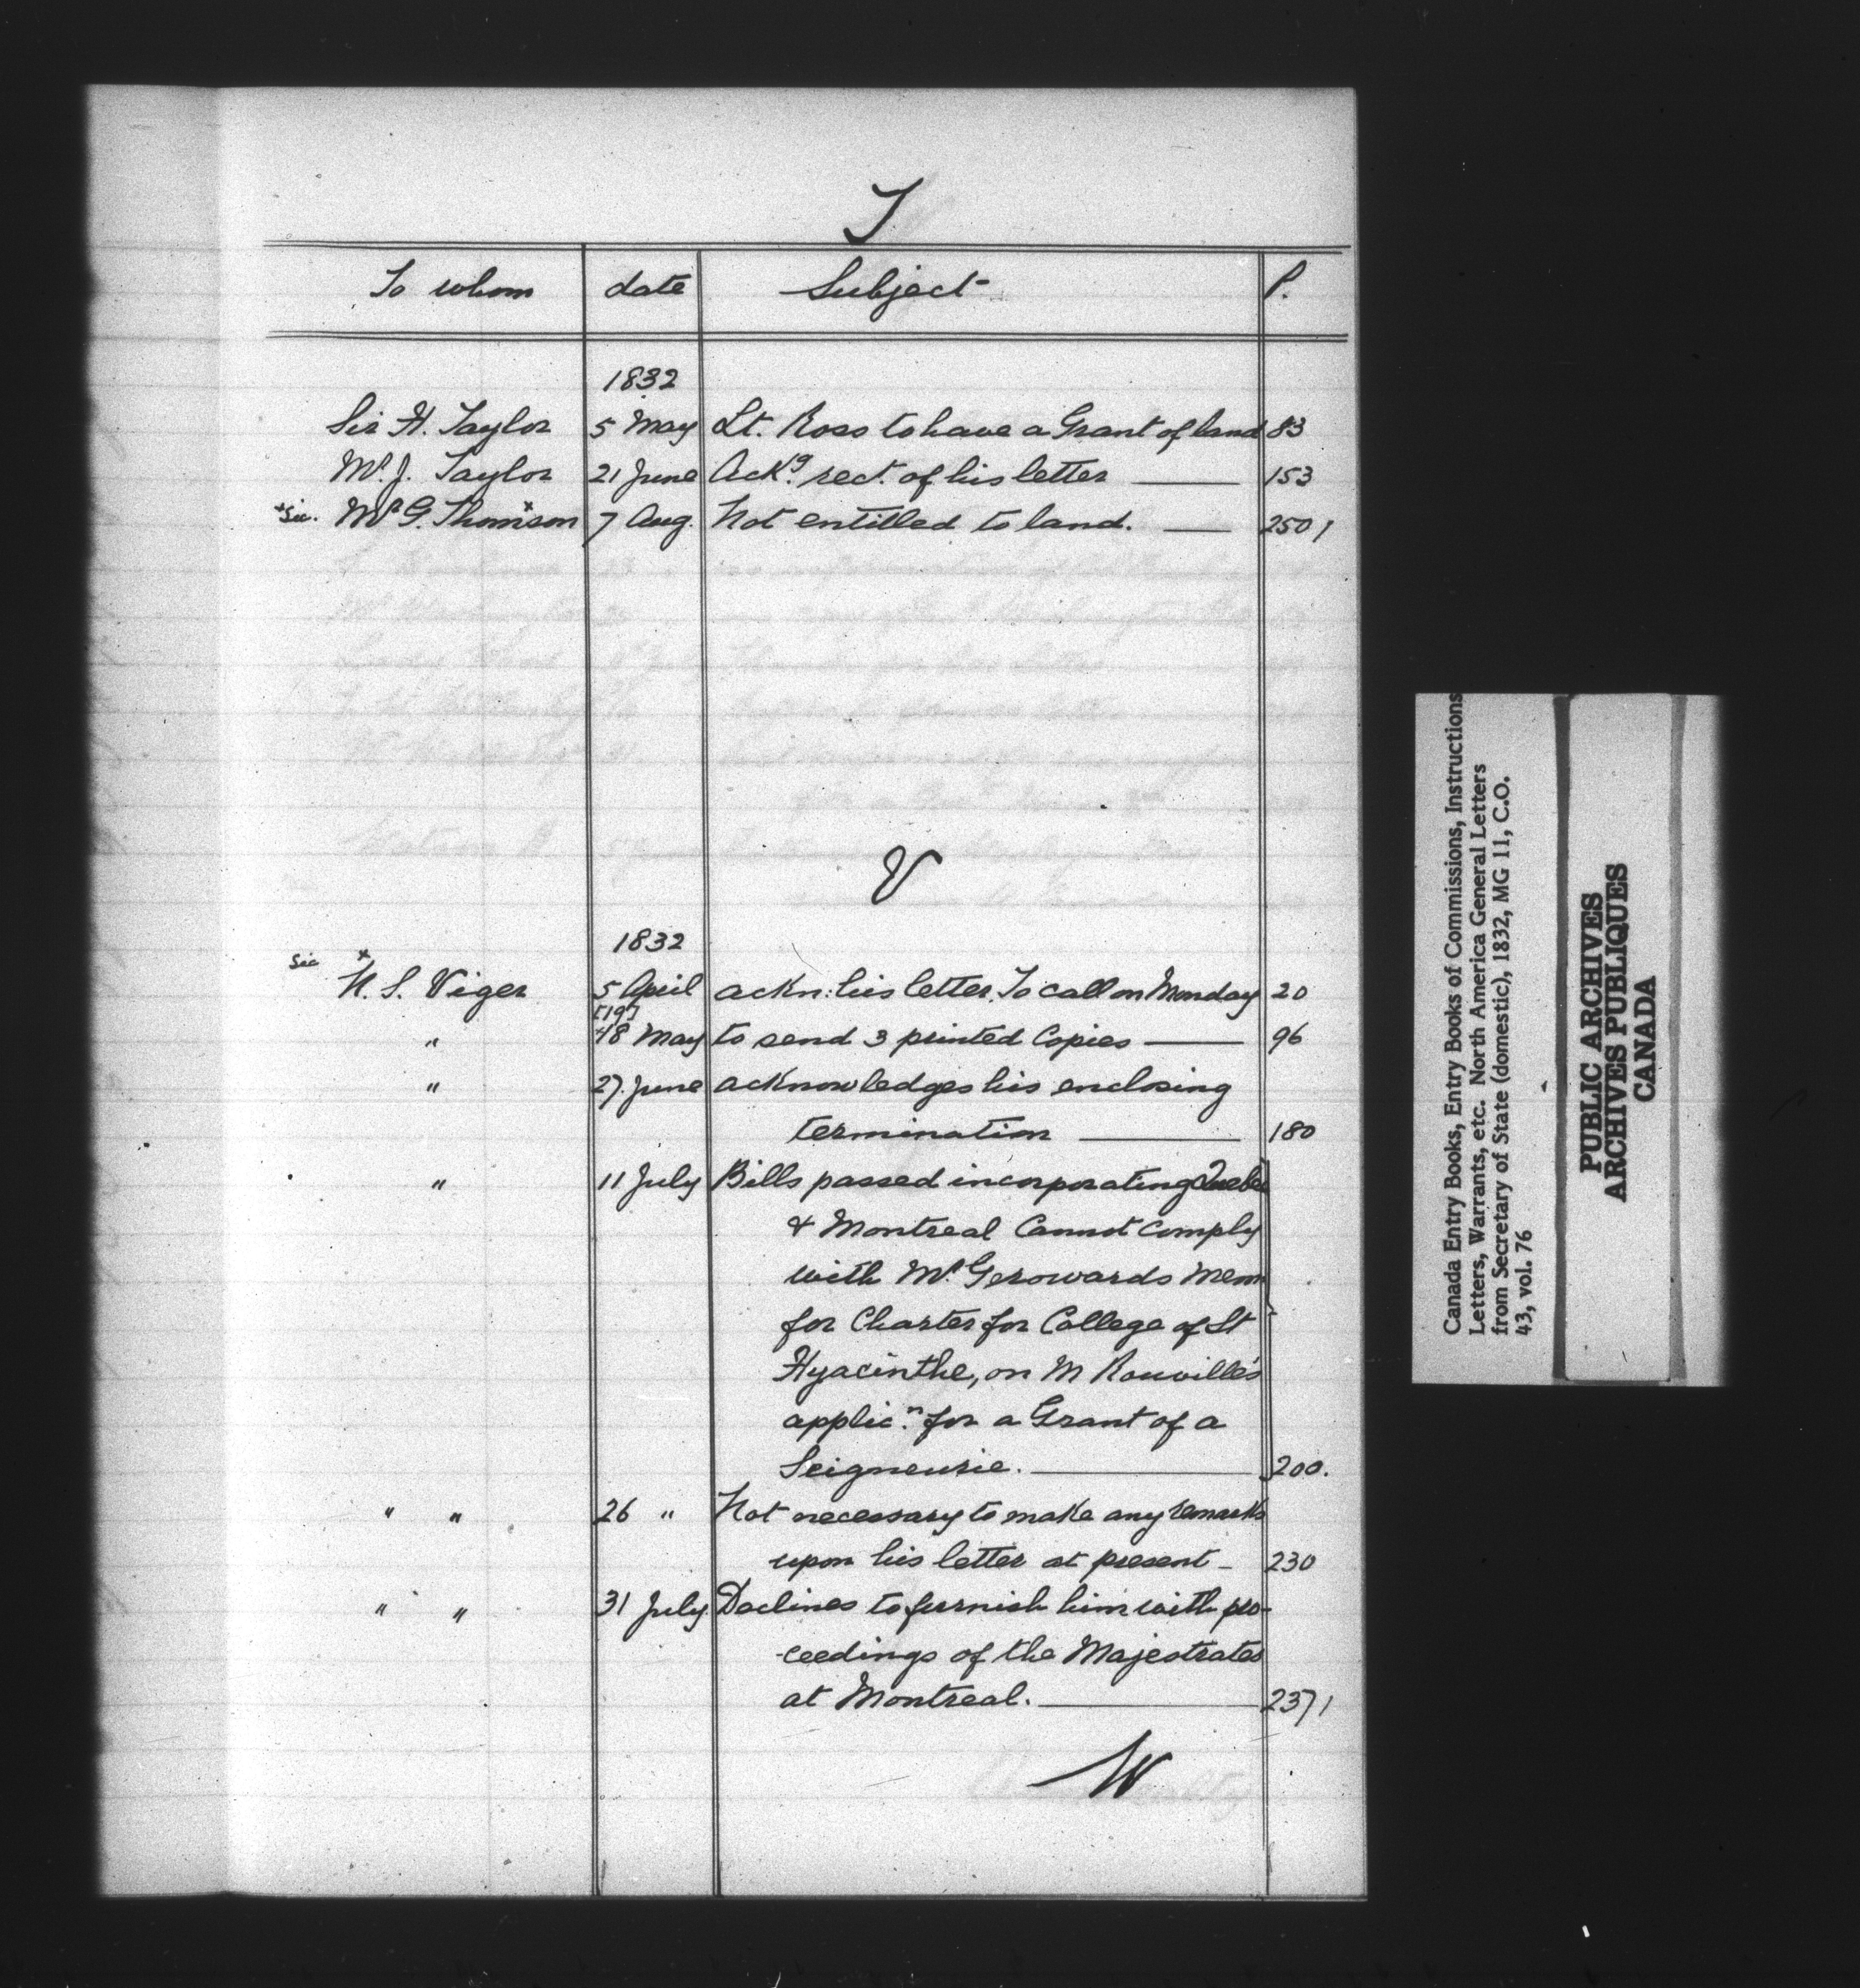 T
To whom date Subject P.
1832
Sir H. Taylor 5 May Lt. Ross to have a Grant of land 83
Mr. J. Taylor 21 June Ackg. rect. of his letter — 153
*Sic. Mr G. Thom*son 7 Aug. Not entitled to land. — 250 /
V
1832
Sic *
N. S. Viger 5 April ackn: his letter. To call on Monday 20
[19]
" *8 May to send 3 printed Copies — 96
" 27. June acknowledges his enclosing
termination — 180
" 11 July Bills passed incorporating Quebec
& Montreal Cannot comply
with Mr. Gerowards Mem
for Charter for College of St
Hyacinthe, on M Rouville's
applicn. for a Grant of a
Seigneurie. — 200.
" " 26 " Not necessary to make any remarks
upon his letter at present — 230
" " 31 July Declines to furnish him with pro-
-ceedings of the Majestrates
at Montreal. — 237 /
W
Canada Entry Books, Entry Books of Commissions, Instructions
Letters, Warrants, etc. North America General Letters
from Secretary of State (domestic), 1832, MG 11, C.O.
43, vol. 76
PUBLIC ARCHIVES
ARCHIVES PUBLIQUES
CANADA